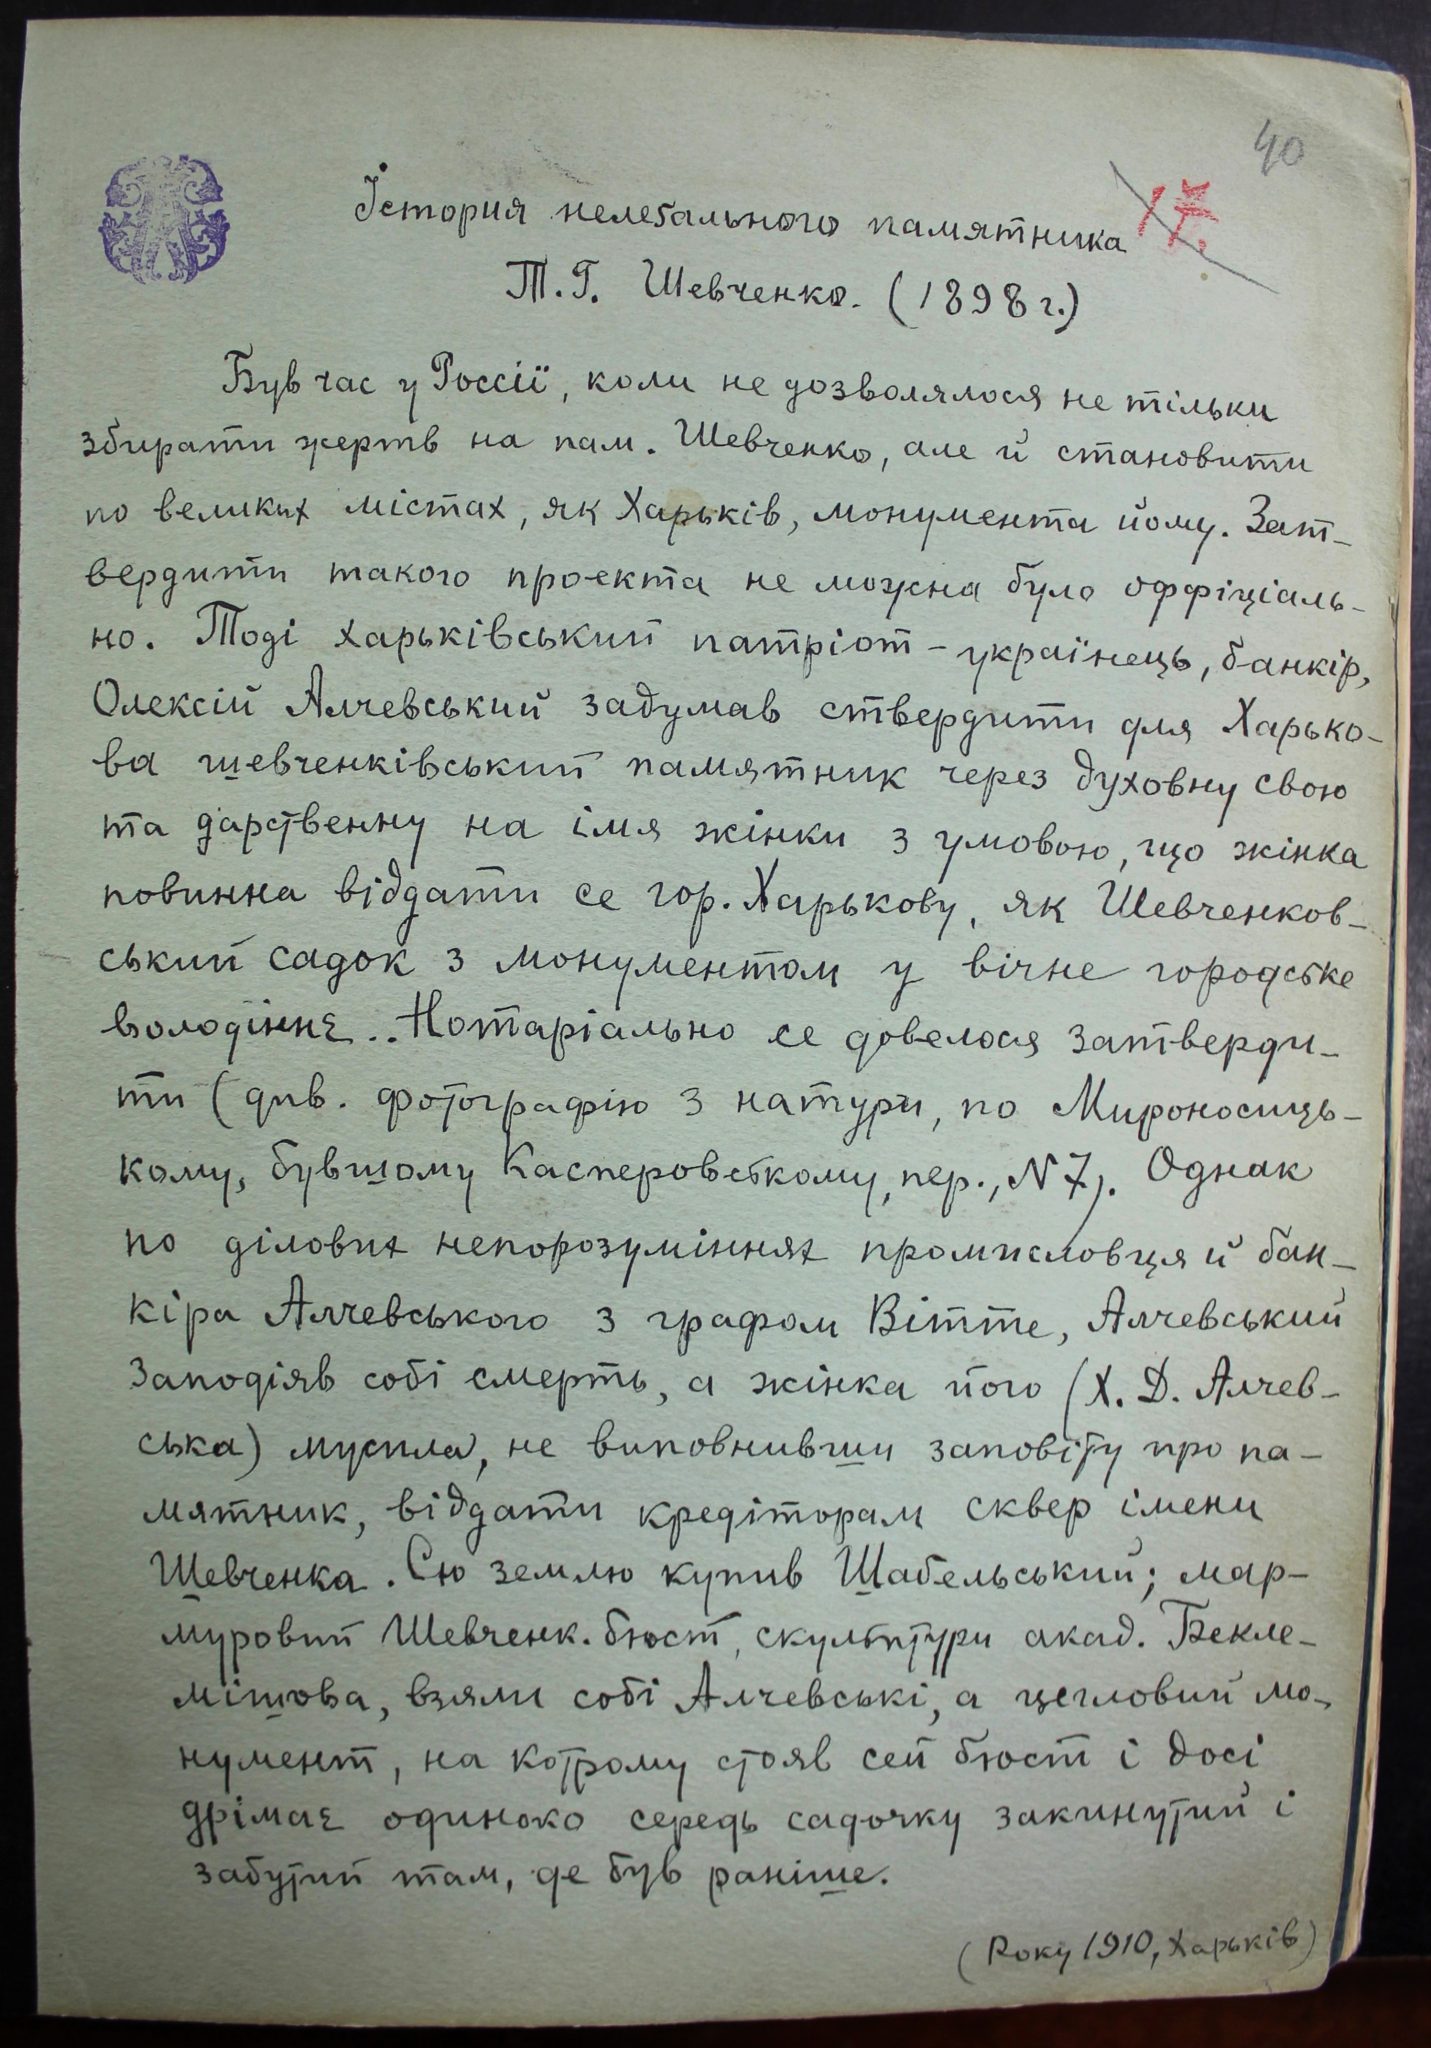 40
17.
Їстория нелегального памятника
Т. Г. Шевченко. (1898 г.)
Був час у Россії, коли не дозволялося не тільки
збирати жертв на пам. Шевченко, але й становити
по великих містах, як Харьків, монумента йому. Зат-
вердити такого проекта не можна було оффіціаль-
но. Тоді харьківський патріот-українець, банкір,
Олексій Алчевський задумав ствердити для Харько-
ва шевченківський памятник через духовну свою
та дарственну на імя жінки з умовою, що жінка
повинна віддати се гор. Харькову, як Шевченков-
ський садок з монументом у вічне городське
володіннє.. Нотаріально се довелося затверди-
ти (див. фотографію з натури, по Мироносиць-
кому, бувшому Касперовському, пер., N 7). Однак
по ділових непорозуміннях промисловця й бан-
кіра Алчевського з графом Вітте, Алчевський
заподіяв собі смерть, а жінка його (Х. Д. Алчев-
ська) мусила, не виповнивши заповіту про па-
мятник, віддати кредіторам сквер імени
Шевченка. Сю землю купив Шабельський; мар-
муровий Шевченк. бюст, скульптури акад. Бекле-
мішова, взяли собі Алчевські, а цегловий мо-
нумент, на котрому стояв сей бюст і досі
дрімає одиноко середь садочку закинутий і
забутий там, де був раніше.
(Року 1910, Харьків)